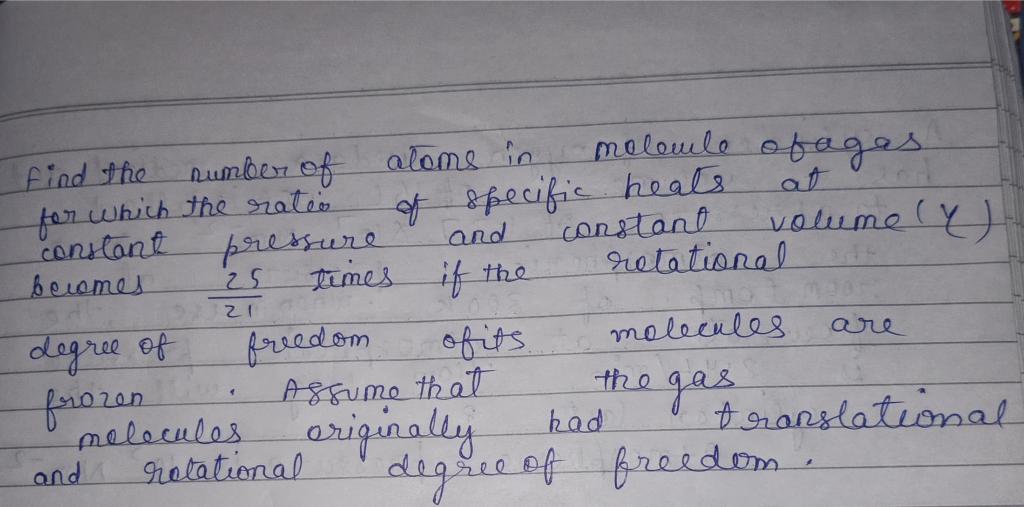 Find the number of atoms in molecule of a gas
for which the ratio of specific heats at
constant pressure and constant volume (γ)
becomes 25/21 times if the rotational
degree of freedom of its molecules are
frozen. Assume that the gas
molecules originally had translational
and rotational degree of freedom.